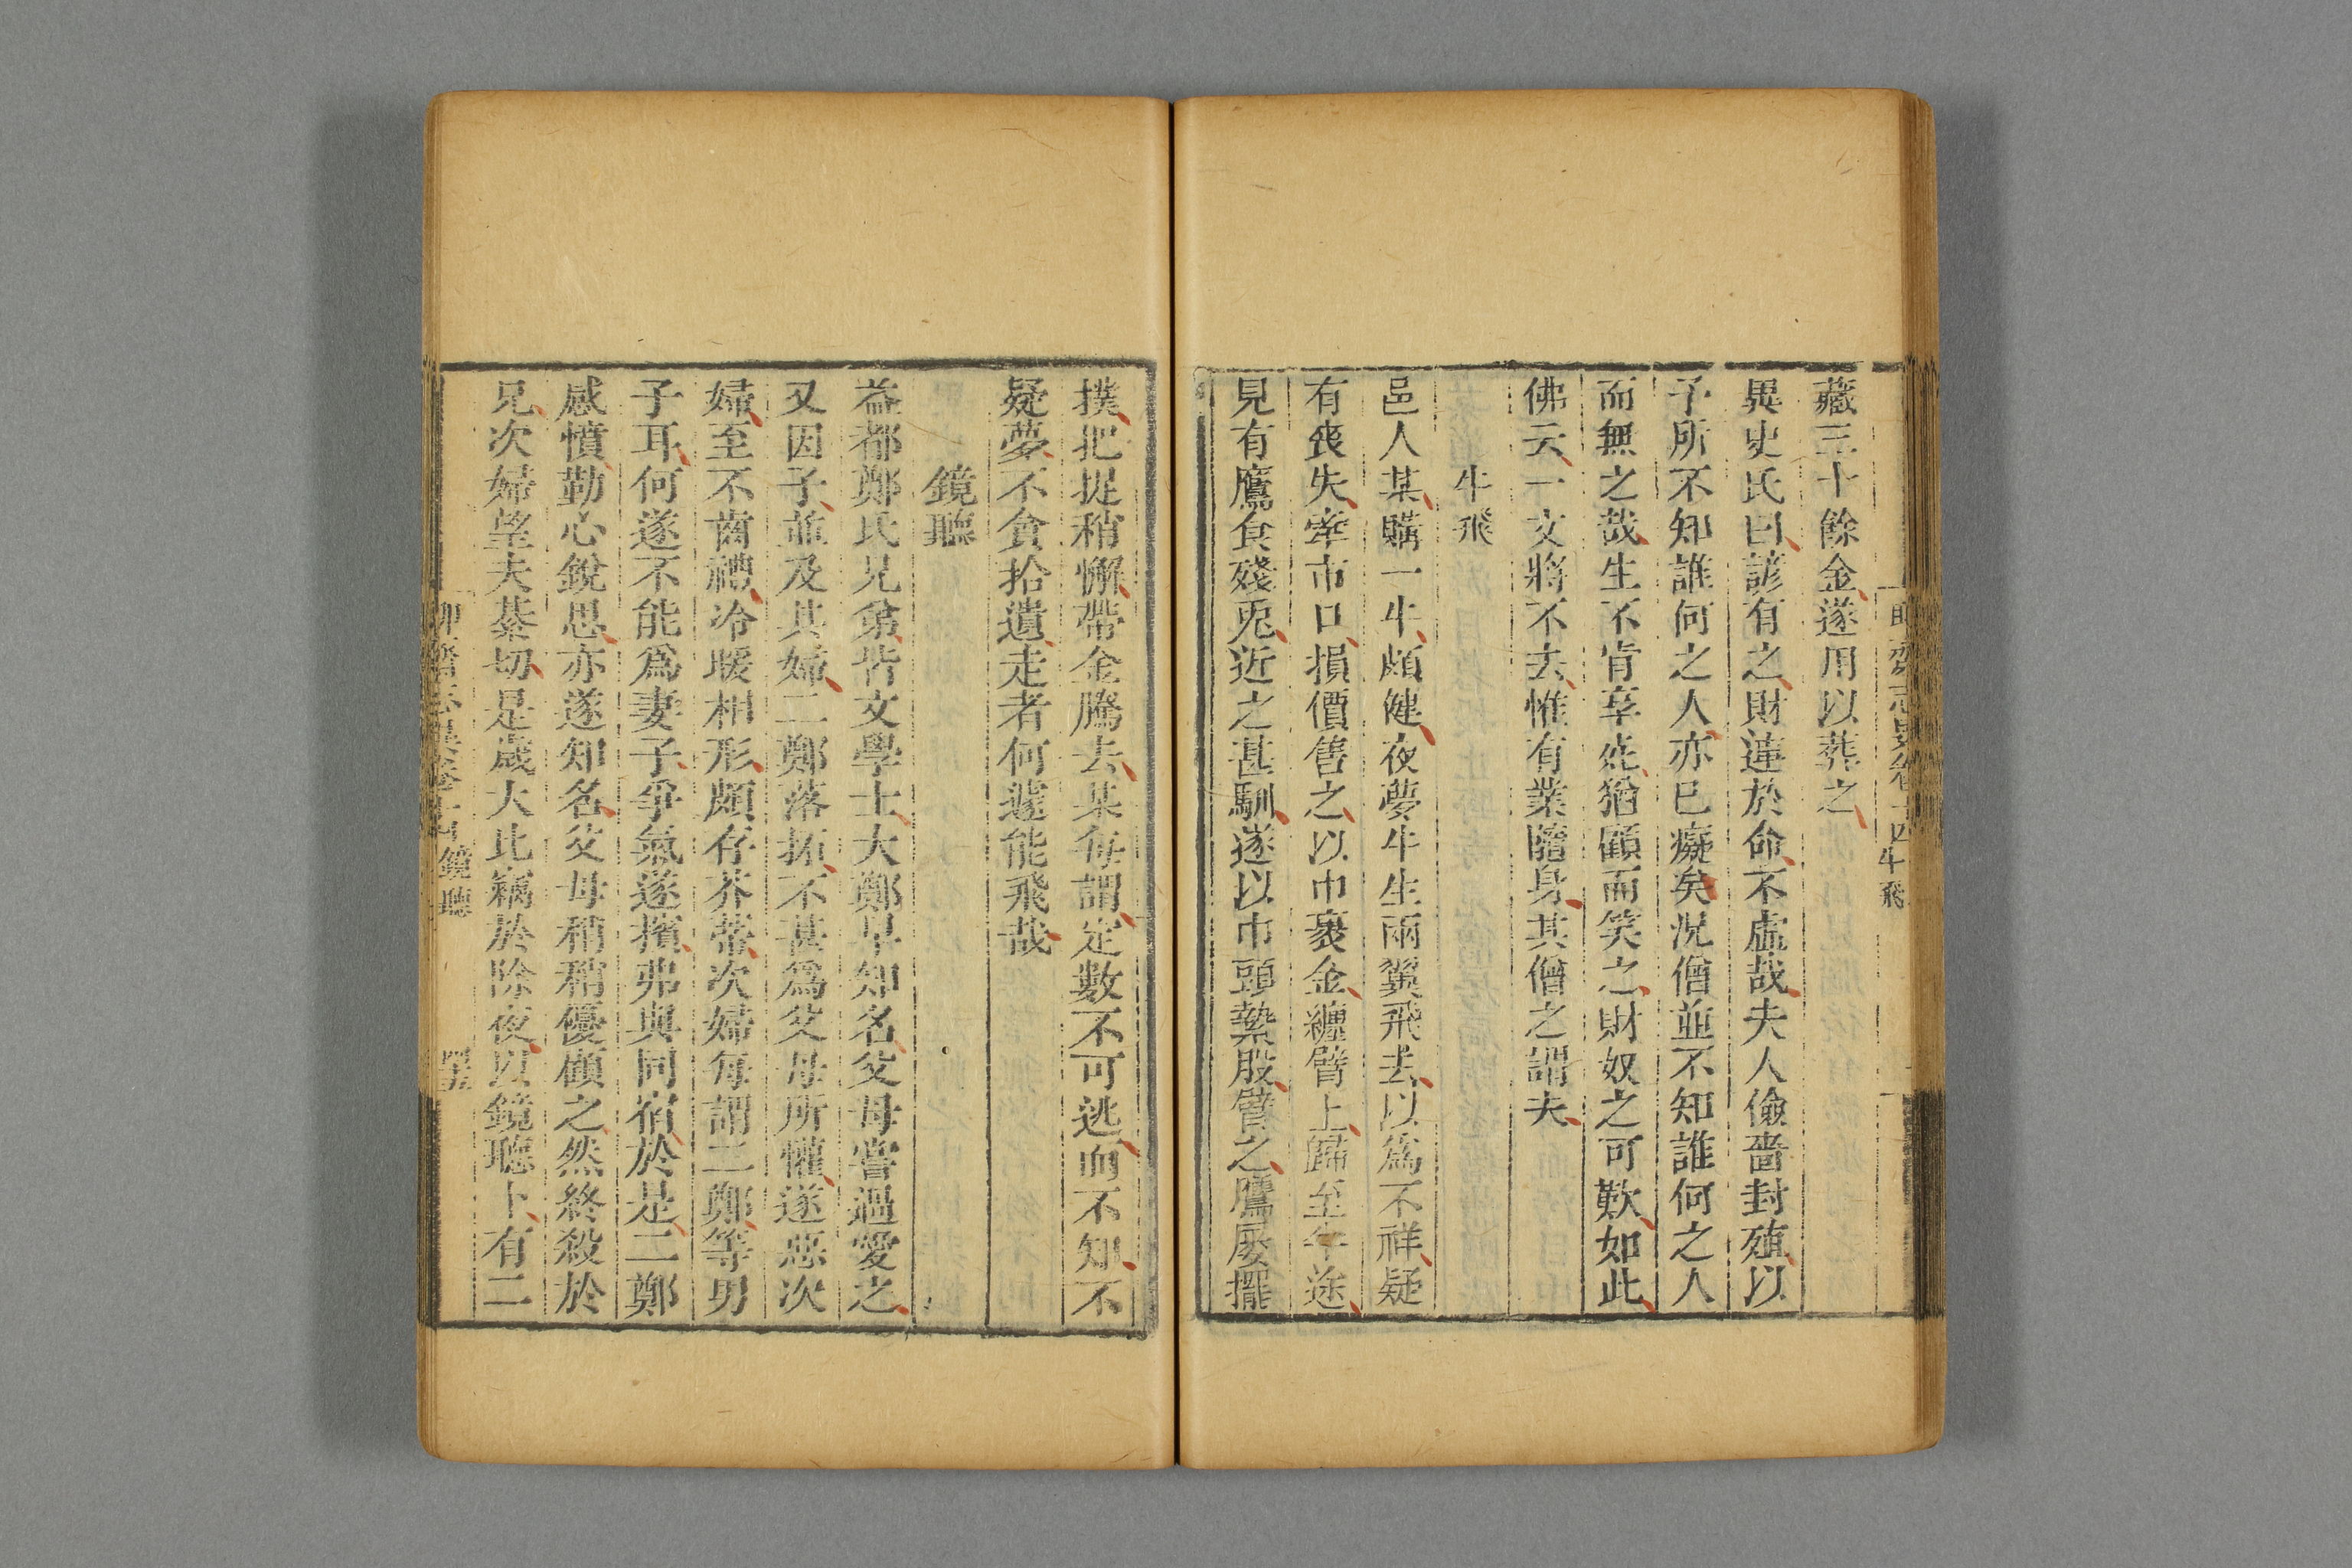 藏三十餘金遂用以葬之
異史氏曰諺有之財連於命不虛哉夫人儉嗇封殖以
予所不知誰何之人亦已癡矣況僧並不知誰何之人
而無之哉生不肯享死猶顧而笑之財奴之可歎如此
佛云一文將不去惟有業隨身其僧之謂夫
牛飛
邑人某購一牛頗健夜夢牛生兩翼飛去以爲不祥疑
有喪失牽市口損價售之以巾裹金纏臂上歸至半途
見有鷹食殘兎近之甚馴遂以巾頭縶股臂之鷹屡擺
撲把捉稍懈帶金騰去某每謂定數不可逃而不知不
疑夢不貪拾遺走者何遽能飛哉
鏡聽
益都鄭氏兄弟皆文學士大鄭早知名父母嘗過愛之
又因子並及其婦二鄭落拓不甚爲父母所懽遂惡次
婦至不齒禮冷暖相形頗存芥蒂次婦每謂二鄭等男
子耳何遂不能爲妻子爭氣遂擯弗與同宿於是二鄭
感憤勤心銳思亦遂知名父母稍稍優顧之然終殺於
兄次婦望夫綦切是歲大比竊於除夜以鏡聽卜有二
聊齋志異卷十四 鏡聽
聊齋志異卷十四 牛飛